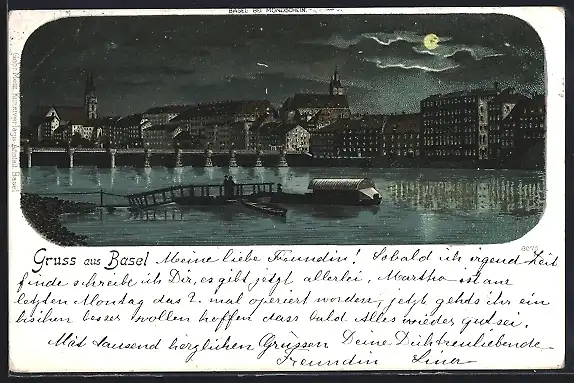 BASEL BEI MONDSCHEIN.
Gruss aus Basel Meine liebe Freundin! Sobald ich irgend Zeit
finde schreibe ich Dir, es gibt jetzt allerlei, Martha ist am
letzten Montag das 2. mal operiert worden, jetzt gehds ihr ein
bischen besser wollen hoffen dass bald Alles wieder gut sei.
Mit tausend herzlichen Grüssen Deine Dichtreuliebende
Freundin Lina